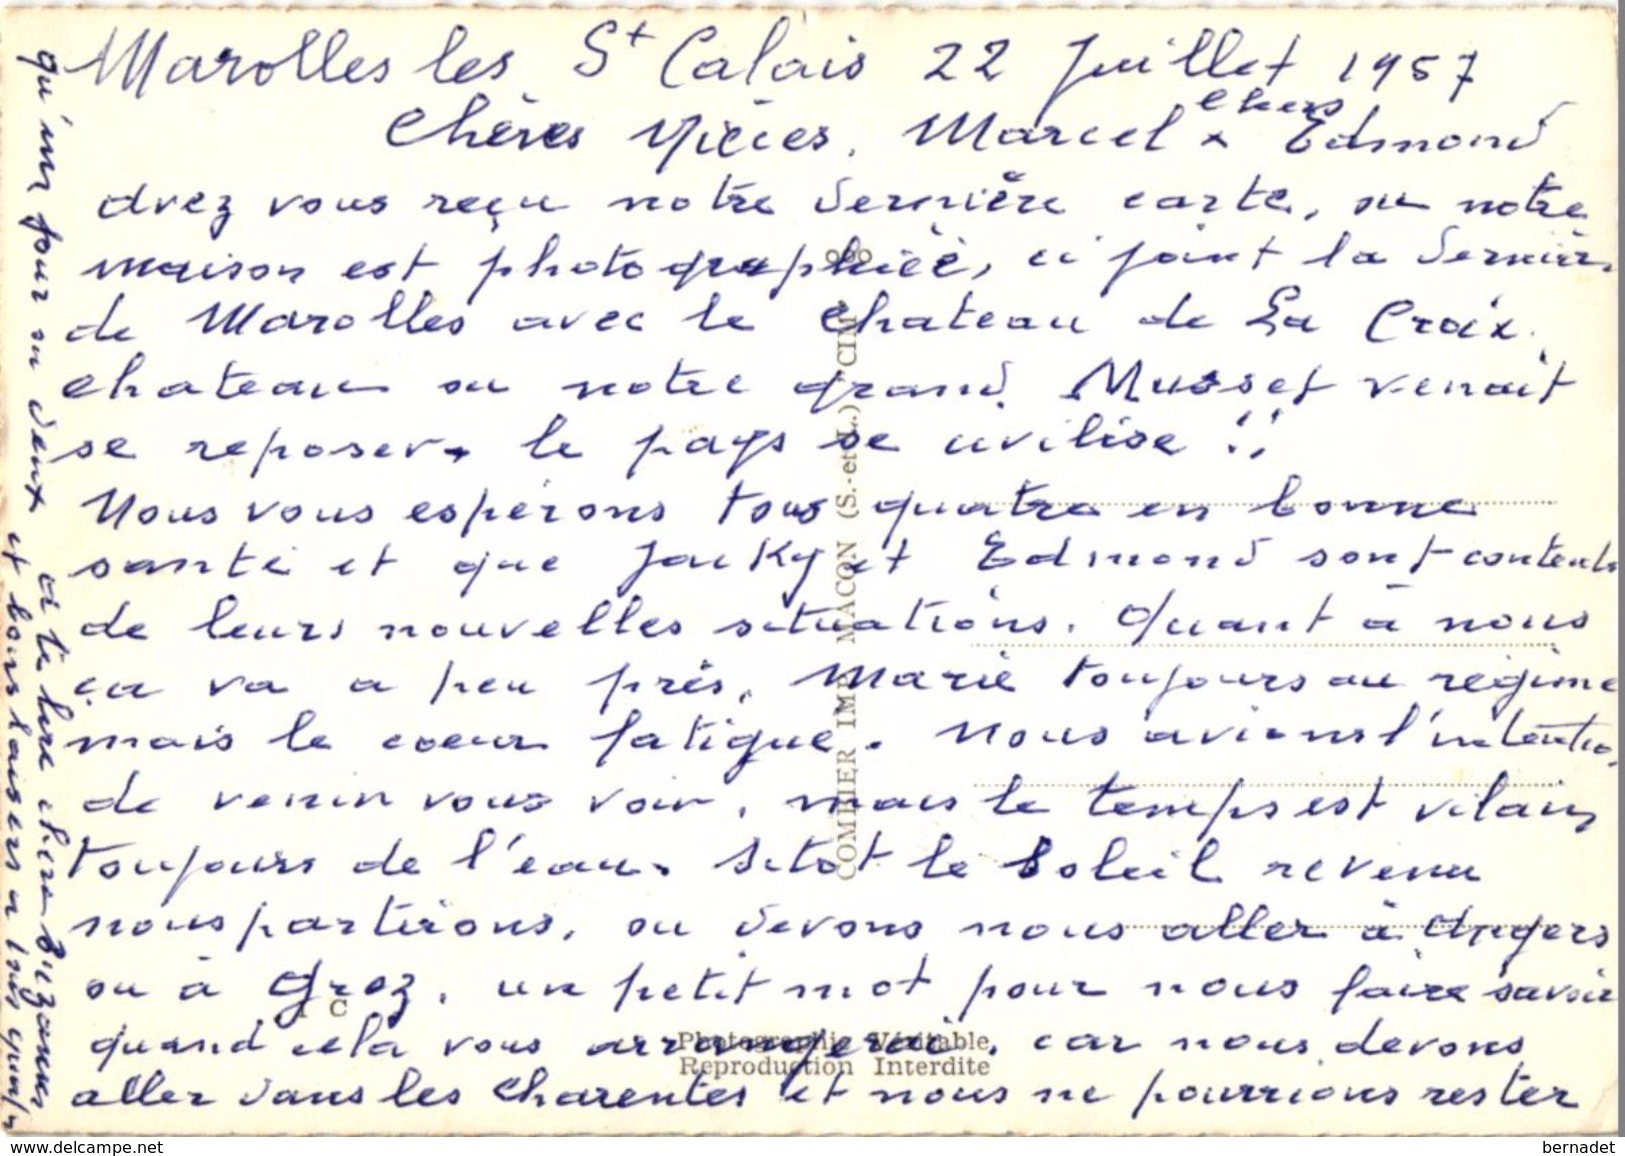 Marolles les St Calais 22 Juillet 1957
Chères Nièces, Marcel x chers Edmond
avez vous reçu notre dernière carte, ou notre
maison est photographiée, ci joint la dernière
de Marolles avec le chateau de La Croix.
chateau ou notre grand Musset venait
se reposer, le pays se civilise !!
Nous vous espérons tous quatre en bonne
santé et que Jacky et Edmond sont contents
de leurs nouvelles situations. Quant à nous
ça va a peu près, Marie toujours au régime
mais le coeur fatigué. Nous avions l'intention
de venir vous voir, mais le temps est vilain
toujours de l'eau. Sitot le Soleil revenu
nous partirons, ou devons nous aller à Angers
ou à Grez, un petit mot pour nous faire savoir
quand cela vous arrangerai, car nous devons
aller dans les Charentes et nous ne pourrions rester
qu'un jour ou deux
à te lire chère
et bons baisers a tous
COMBIER IMP. MACON (S.-et-L.) "CIM"
C
Photographie Véritable
Reproduction Interdite
https://www.delcampe.net
bernadet